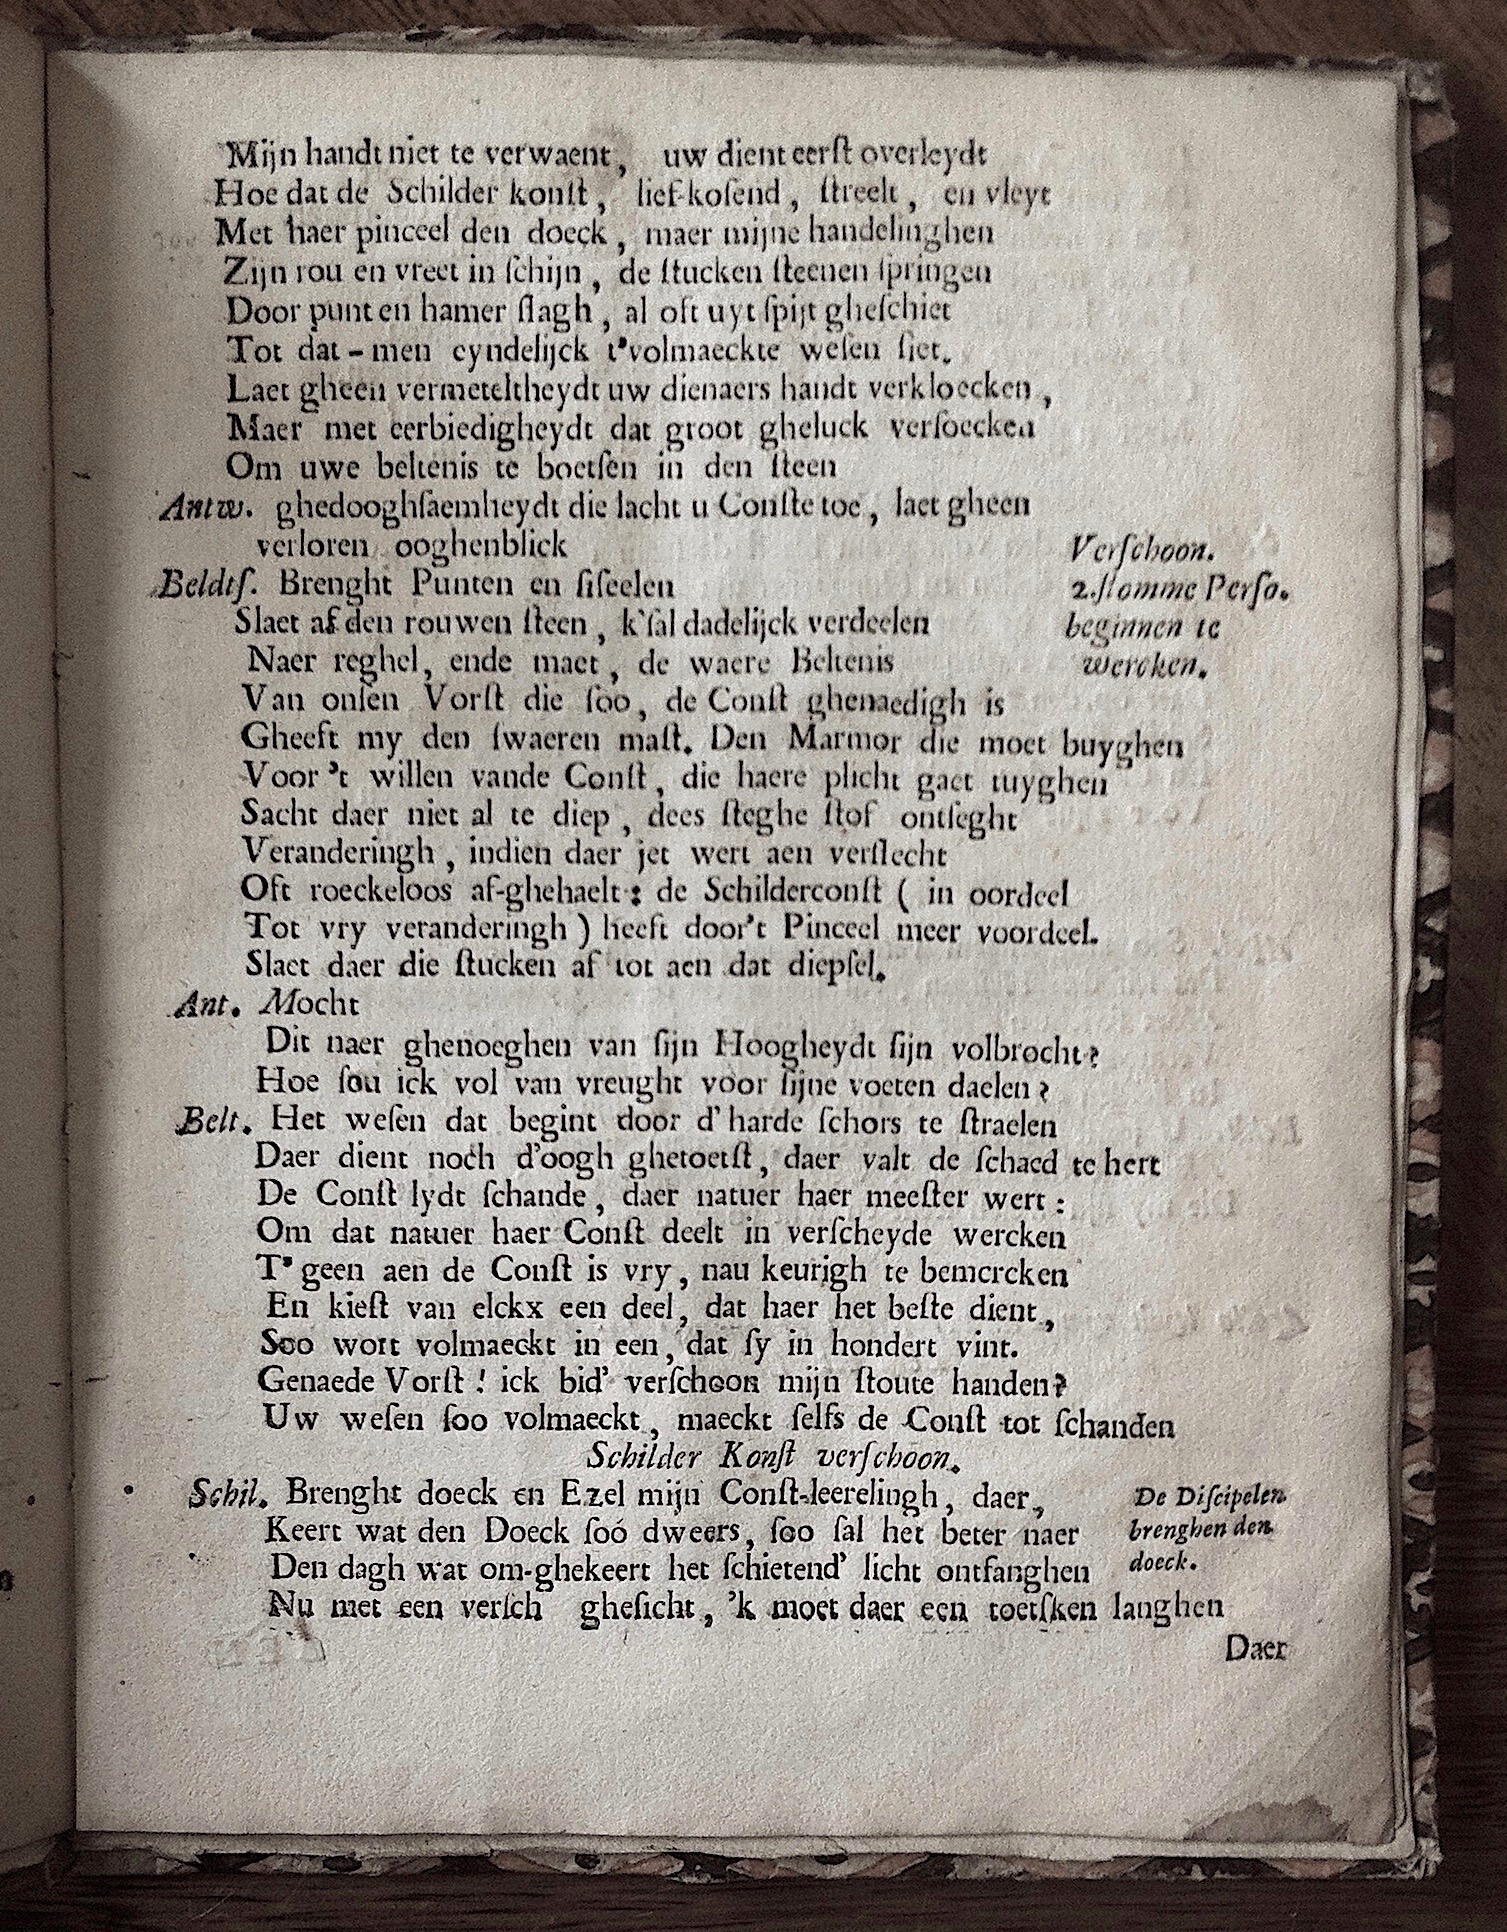 Mijn handt niet te verwaent, uw dient eerſt overleydt
Hoe dat de Schilder konſt, lief-koſend, ſtreelt, en vleyt
Met haer pinceel den doeck, maer mijne handelinghen
Zijn rou en vreet in ſchijn, de ſtucken ſteenen ſpringen
Door punt en hamer ſlagh, al oft uyt ſpijt gheſchiet
Tot dat-men eyndelijck t'volmaeckte weſen ſiet.
Laet gheen vermeteltheydt uw dienaers handt verkloecken,
Maer met eerbiedigheydt dat groot gheluck verſoecken
Om uwe beltenis te boetſen in den ſteen
Antw. ghedooghſaemheydt die lacht u Conſte toe, laet gheen
verloren ooghenblick
Verſchoon.
Beldtſ. Brenght Punten en ſiſeelen
2. ſtomme Perſo.
Slaet af den rouwen ſteen, k'ſal dadelijck verdeelen
beginnen te
Naer reghel, ende maet, de waere Beltenis
wercken.
Van onſen Vorſt die ſoo, de Conſt ghenaedigh is
Gheeft my den ſwaeren maſt. Den Marmor die moet buyghen
Voor 't willen vande Conſt, die haere plicht gaet tuyghen
Sacht daer niet al te diep, dees ſteghe ſtof ontſeght
Veranderingh, indien daer jet wert aen verſlecht
Oft roeckeloos af-ghehaelt: de Schilderconſt ( in oordeel
Tot vry veranderingh ) heeft door't Pinceel meer voordeel.
Slaet daer die ſtucken af tot aen dat diepſel.
Ant. Mocht
Dit naer ghenoeghen van ſijn Hoogheydt ſijn volbrocht?
Hoe ſou ick vol van vreught voor ſijne voeten daelen?
Belt. Het weſen dat begint door d'harde ſchors te ſtraelen
Daer dient noch d'oogh ghetoetſt, daer valt de ſchaed te hert
De Conſt lydt ſchande, daer natuer haer meeſter wert:
Om dat natuer haer Conſt deelt in verſcheyde wercken
T'geen aen de Conſt is vry, nau keurigh te bemercken
En kieſt van elckx een deel, dat haer het beſte dient,
Soo wort volmaeckt in een, dat ſy in hondert vint.
Genaede Vorſt! ick bid' verſchoon mijn ſtoute handen?
Uw weſen ſoo volmaeckt, maeckt ſelfs de Conſt tot ſchanden
Schilder Konſt verſchoon.
Schil. Brenght doeck en Ezel mijn Conſt-leerelingh, daer,
De Diſcipelen
Keert wat den Doeck ſoó dweers, ſoo ſal het beter naer
brenghen den
Den dagh wat om-ghekeert het ſchietend' licht ontfanghen
doeck.
Nu met een verſch gheſicht, 'k moet daer een toetſken langhen
Daer